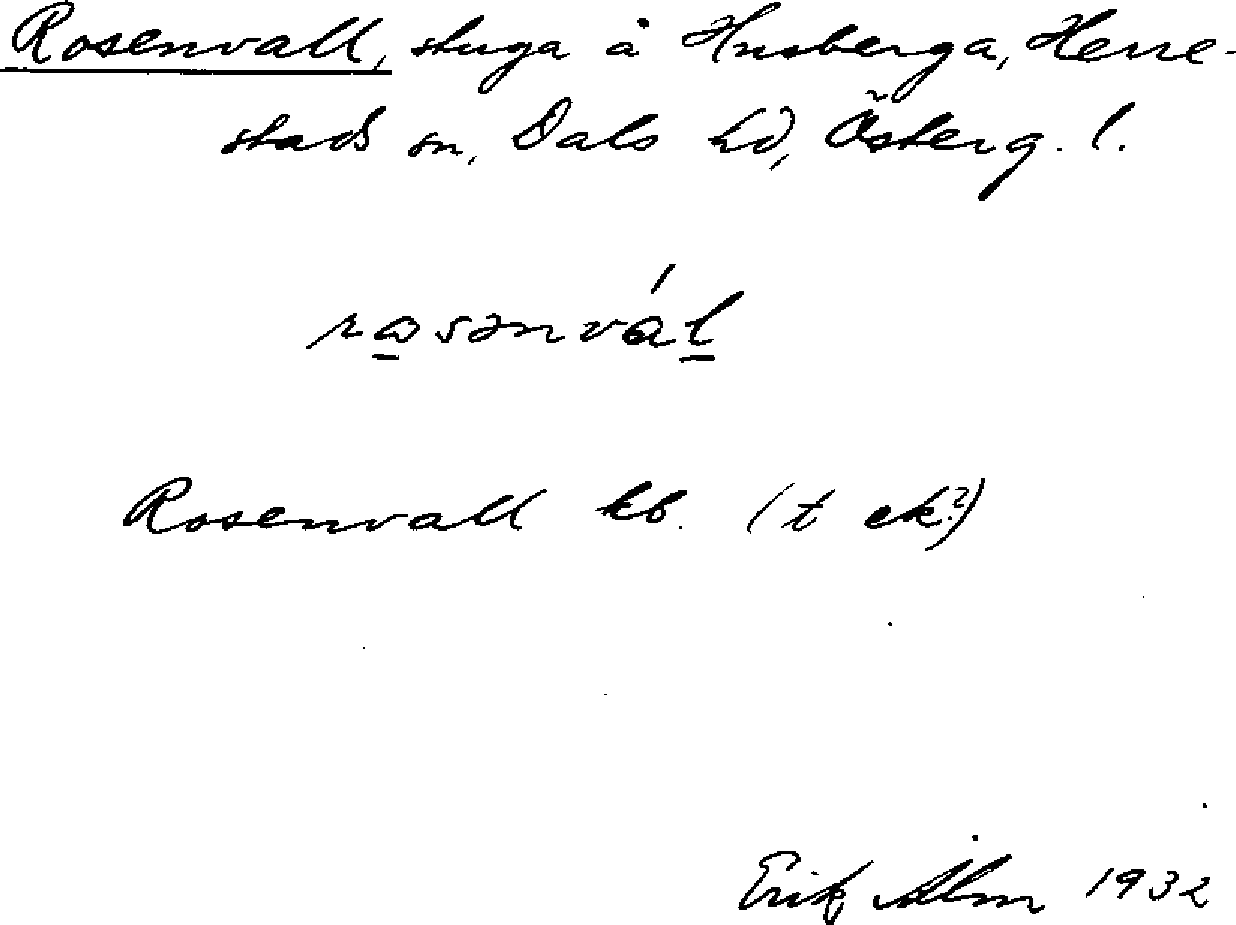 Rosenvall, stuga å Husberga, Herre-
stads sn, Dals hd, Österg. l.
rosənvál
Rosenvall kb. (t ek?)
Erik Alm 1932